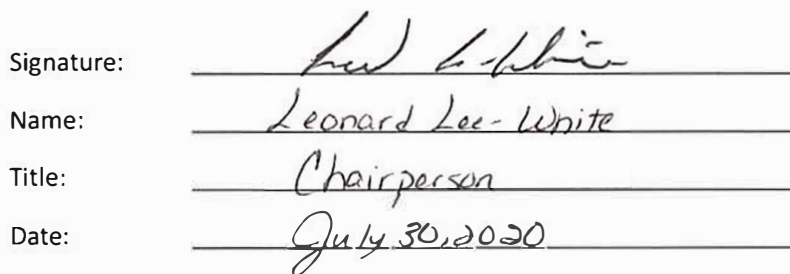 Signature:
Name: Leonard Lee-White
Title: Chairperson
Date: July 30, 2020